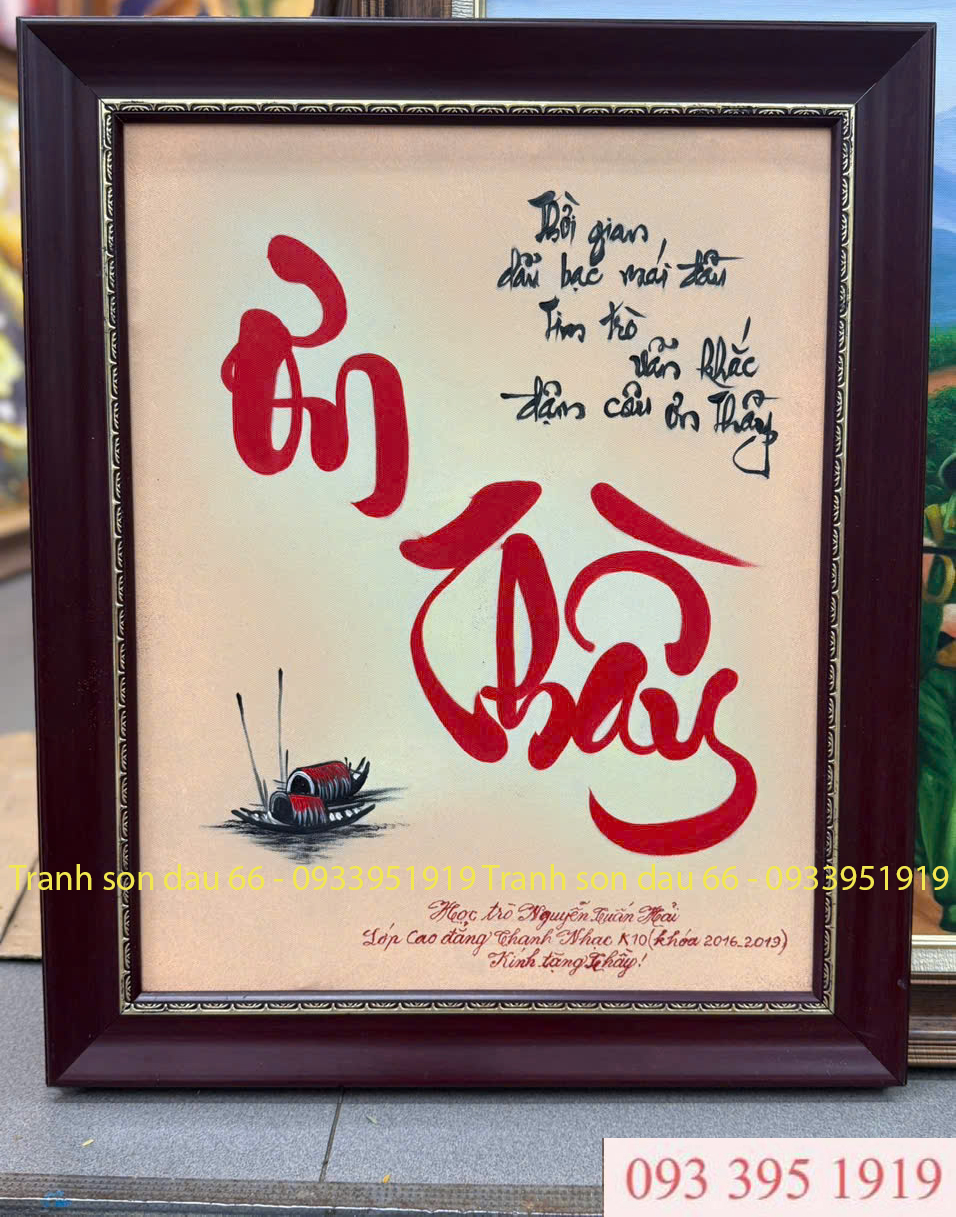 Thời gian
dẫu bạc mái đầu
Tim trò
vẫn khắc
đậm câu ơn Thầy
Ơn
Thầy
Tranh son dau 66 - 0933951919 Tranh son dau 66 - 0933951919
Học trò Nguyễn Tuấn Hải
Lớp Cao đẳng Thanh Nhạc K10 (khóa 2016-2019)
Kính tặng Thầy!
093 395 1919